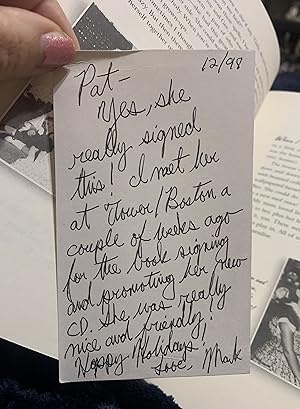 12/98
Pat-
Yes, she
really signed
this! I met her
at Tower/Boston a
couple of weeks ago
for the book signing
and promoting her new
CD. She was really
nice and friendly!
Happy Holidays!
Love, Mark